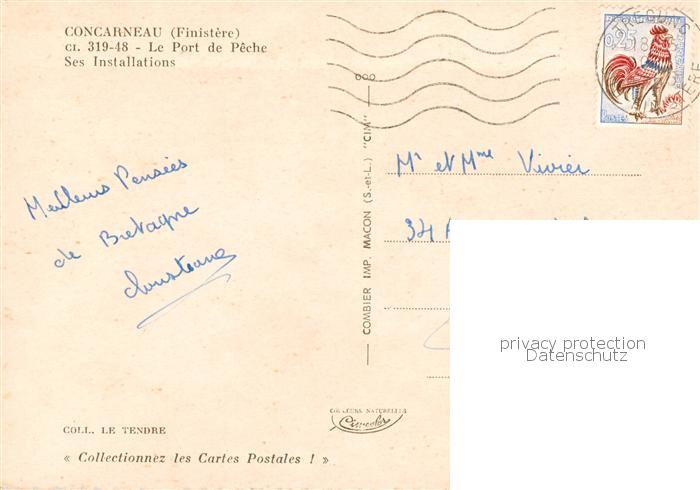 CONCARNEAU (Finistère)
CI. 319-48 - Le Port de Pêche
Ses Installations
0,25
Postes
Meilleurs Pensées
de Bretagne
COMBIER IMP. MACON (S.-et-L.) "CIM"
Mr et Mme Vivier
34
privacy protection
Datenschutz
COULEURS NATURELLES
Cimcolor
COLL. LE TENDRE
« Collectionnez les Cartes Postales ! »